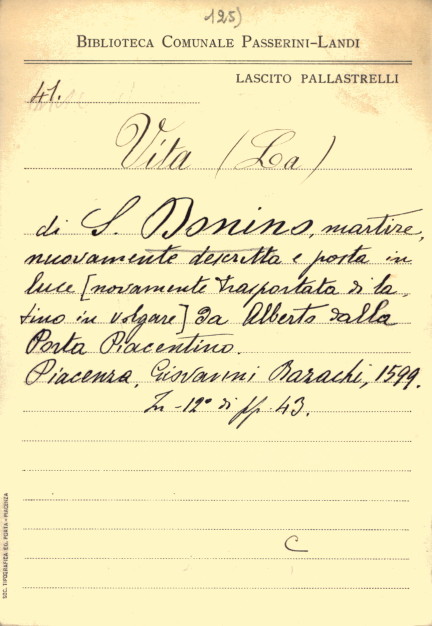 125)
BIBLIOTECA COMUNALE PASSERINI-LANDI
LASCITO PALLASTRELLI
41.
Vita (La)
di S. Donino, martire,
nuovamente descritta e posta in
luce [novamente trasportata di la-
tino in volgare] da Alberto dalla
Porta Piacentino.
Piacenza, Giovanni Bazachi, 1599.
In-12° di pp. 43.
C
SOC. TIPOGRAFICA ED. PORTA-PIACENZA